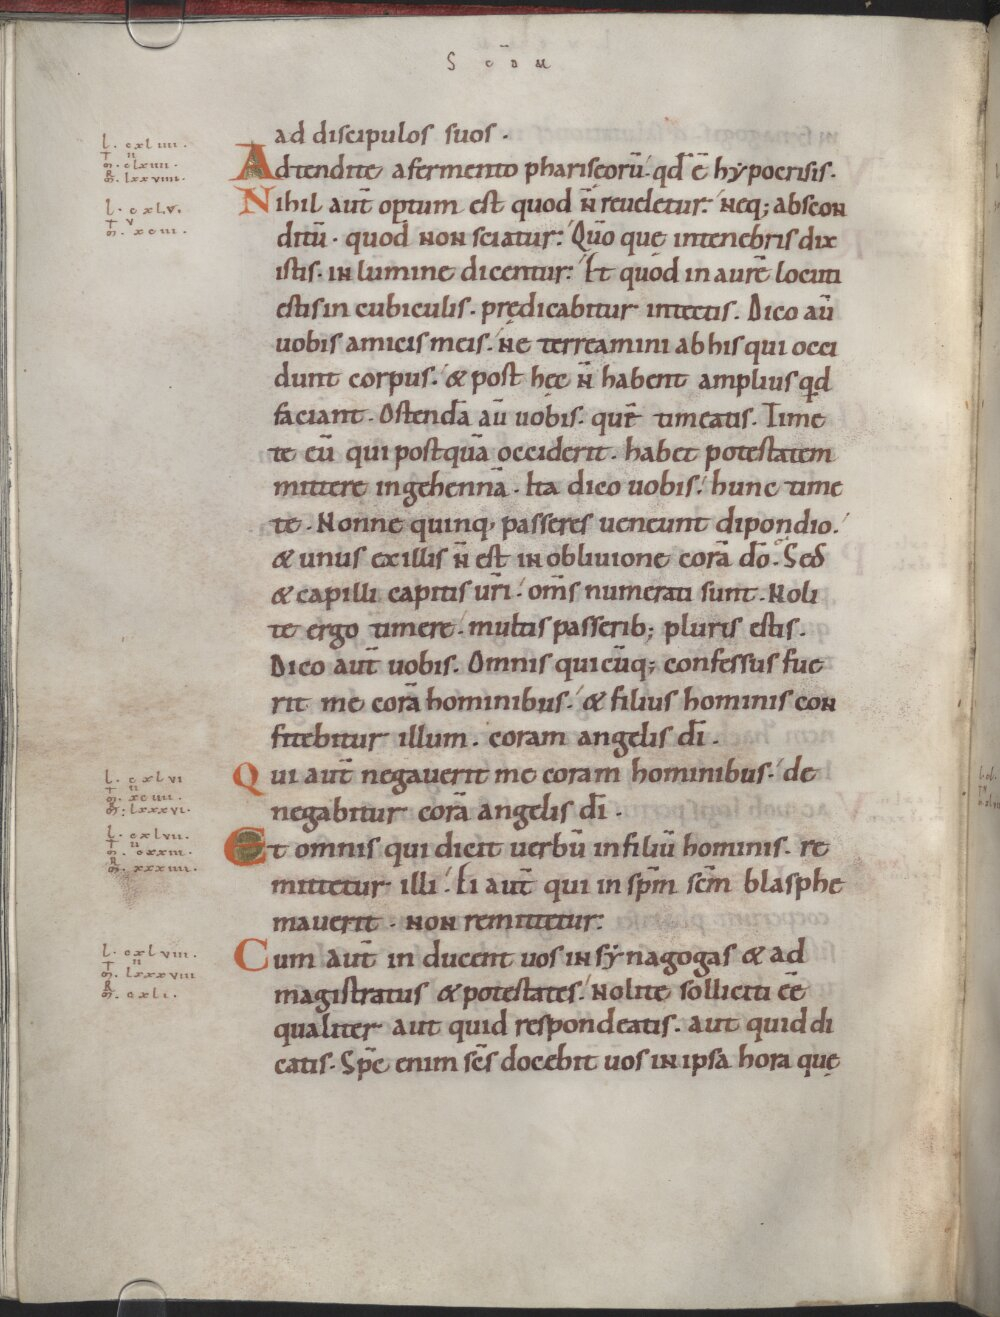 S c̄ d m
ad discipulos suos.
l. cxliiii.
T ii
G. clxiiii.
R
G. lxxviiii.
Adtendite a fermento phariseorū. qd ē hypocrisis.
l. cxl,v.
T v
G. xciii.
Nihil aut̄ optum est quod n̄ reueletur. neq; abscon
ditū. quod non sciatur. Qūo que intenebris dix
istis. in lumine dicentur. Et quod in aurē locuti
estis in cubiculis. prędicabitur intectis. Dico aū
uobis amicis meis. ne terreamini ab his qui occi
dunt corpus. & post hęc n̄ habent amplius qd
faciant. Ostendā aū uobis. quē timeatis. Time
te eū qui postquā occiderit. habet potestatem
mittere in gehennā. Ita dico uobis. hunc time
te. Nonne quinq, passeres ueneunt dipondio.
& unus ex illis n̄ est in obliuione corā dō. Sed
& capilli capitis uri̅. om̄s numerati sunt. Noli
te ergo timere. multis passerib; pluris estis.
Dico aut̄ uobis. Omnis quicūq; confessus fue
rit me corā hominibus. & filius hominis con
fitebitur illum. coram angelis dī.
l. cxlvi
T ii
G. xciiii.
G. lxxxvi.
Qui aut̄ negauerit me coram hominibus. de
negabitur corā angelis dī.
l. cxlvii.
T ii
G. cxxiii.
R
G. xxxiiii.
Et omnis qui dicit uerbū in filiū hominis. re
mittetur illi. Ei aut̄ qui in sp̄m sc̄m blasphe
mauerit. non remittetur.
l. cxlviii.
T ii
G. lxxxviii
R
G. cxli.
Cum aut̄ in ducent uos in sẏnagogas & ad
magistratus & potestates. Nolite solliciti cē̄
qualiter aut quid respondeatis. aut quid di
catis. Sp̄c enim sc̄s docebit uos in ipsa hora quę